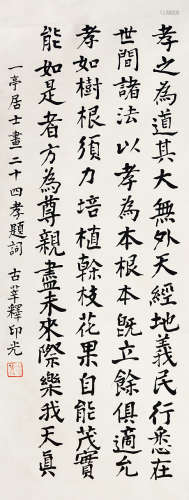 孝之為道其大無外天經地義民行悉在
世間諸法以孝為本根本既立餘俱適允
孝如樹根須力培植榦枝花果自能茂實
能如是者方為尊親盡未來際樂我天真
一亭居士畫二十四孝題詞 古莘釋印光